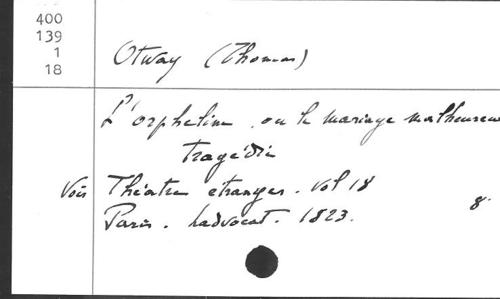 400
139
1
18
Otway (Thomas)
L'orpheline, ou le mariage malheureux
tragédie
Voir Théatre étranger. Vol 18
Paris. Ladvocat. 1823. 8°